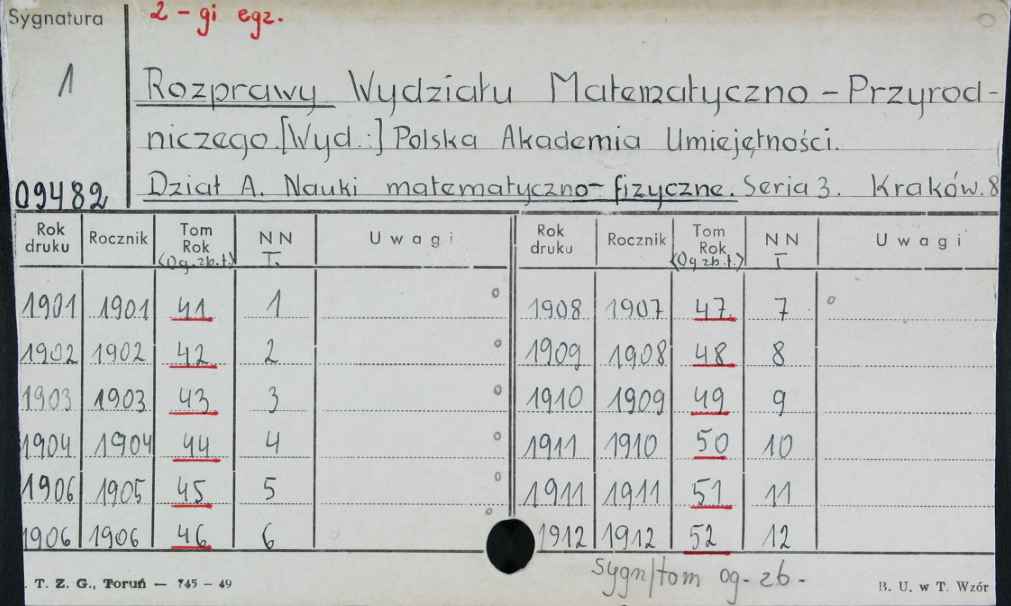 Sygnatura 2-gi egz.
1
Rozprawy Wydziału Matematyczno-Przyrod-
niczego.[Wyd.:] Polska Akademia Umiejętności.
09482 Dział A. Nauki matematyczno-fizyczne. Seria 3. Kraków. 8
Rok druku Rocznik Tom Rok (Og. zb. t.) NN T. Uwagi Rok druku Rocznik Tom Rok (Og zb. t.) NN T Uwagi
1901 1901 41 1 1908 1907 47 7
1902 1902 42 2 1909 1908 48 8
1903 1903 43 3 1910 1909 49 9
1904 1904 44 4 1911 1910 50 10
1906 1905 45 5 1911 1911 51 11
1906 1906 46 6 1912 1912 52 12
Sygn/tom og. zb.
. T. Z. G., Toruń — 745 – 49 B. U. w T. Wzór